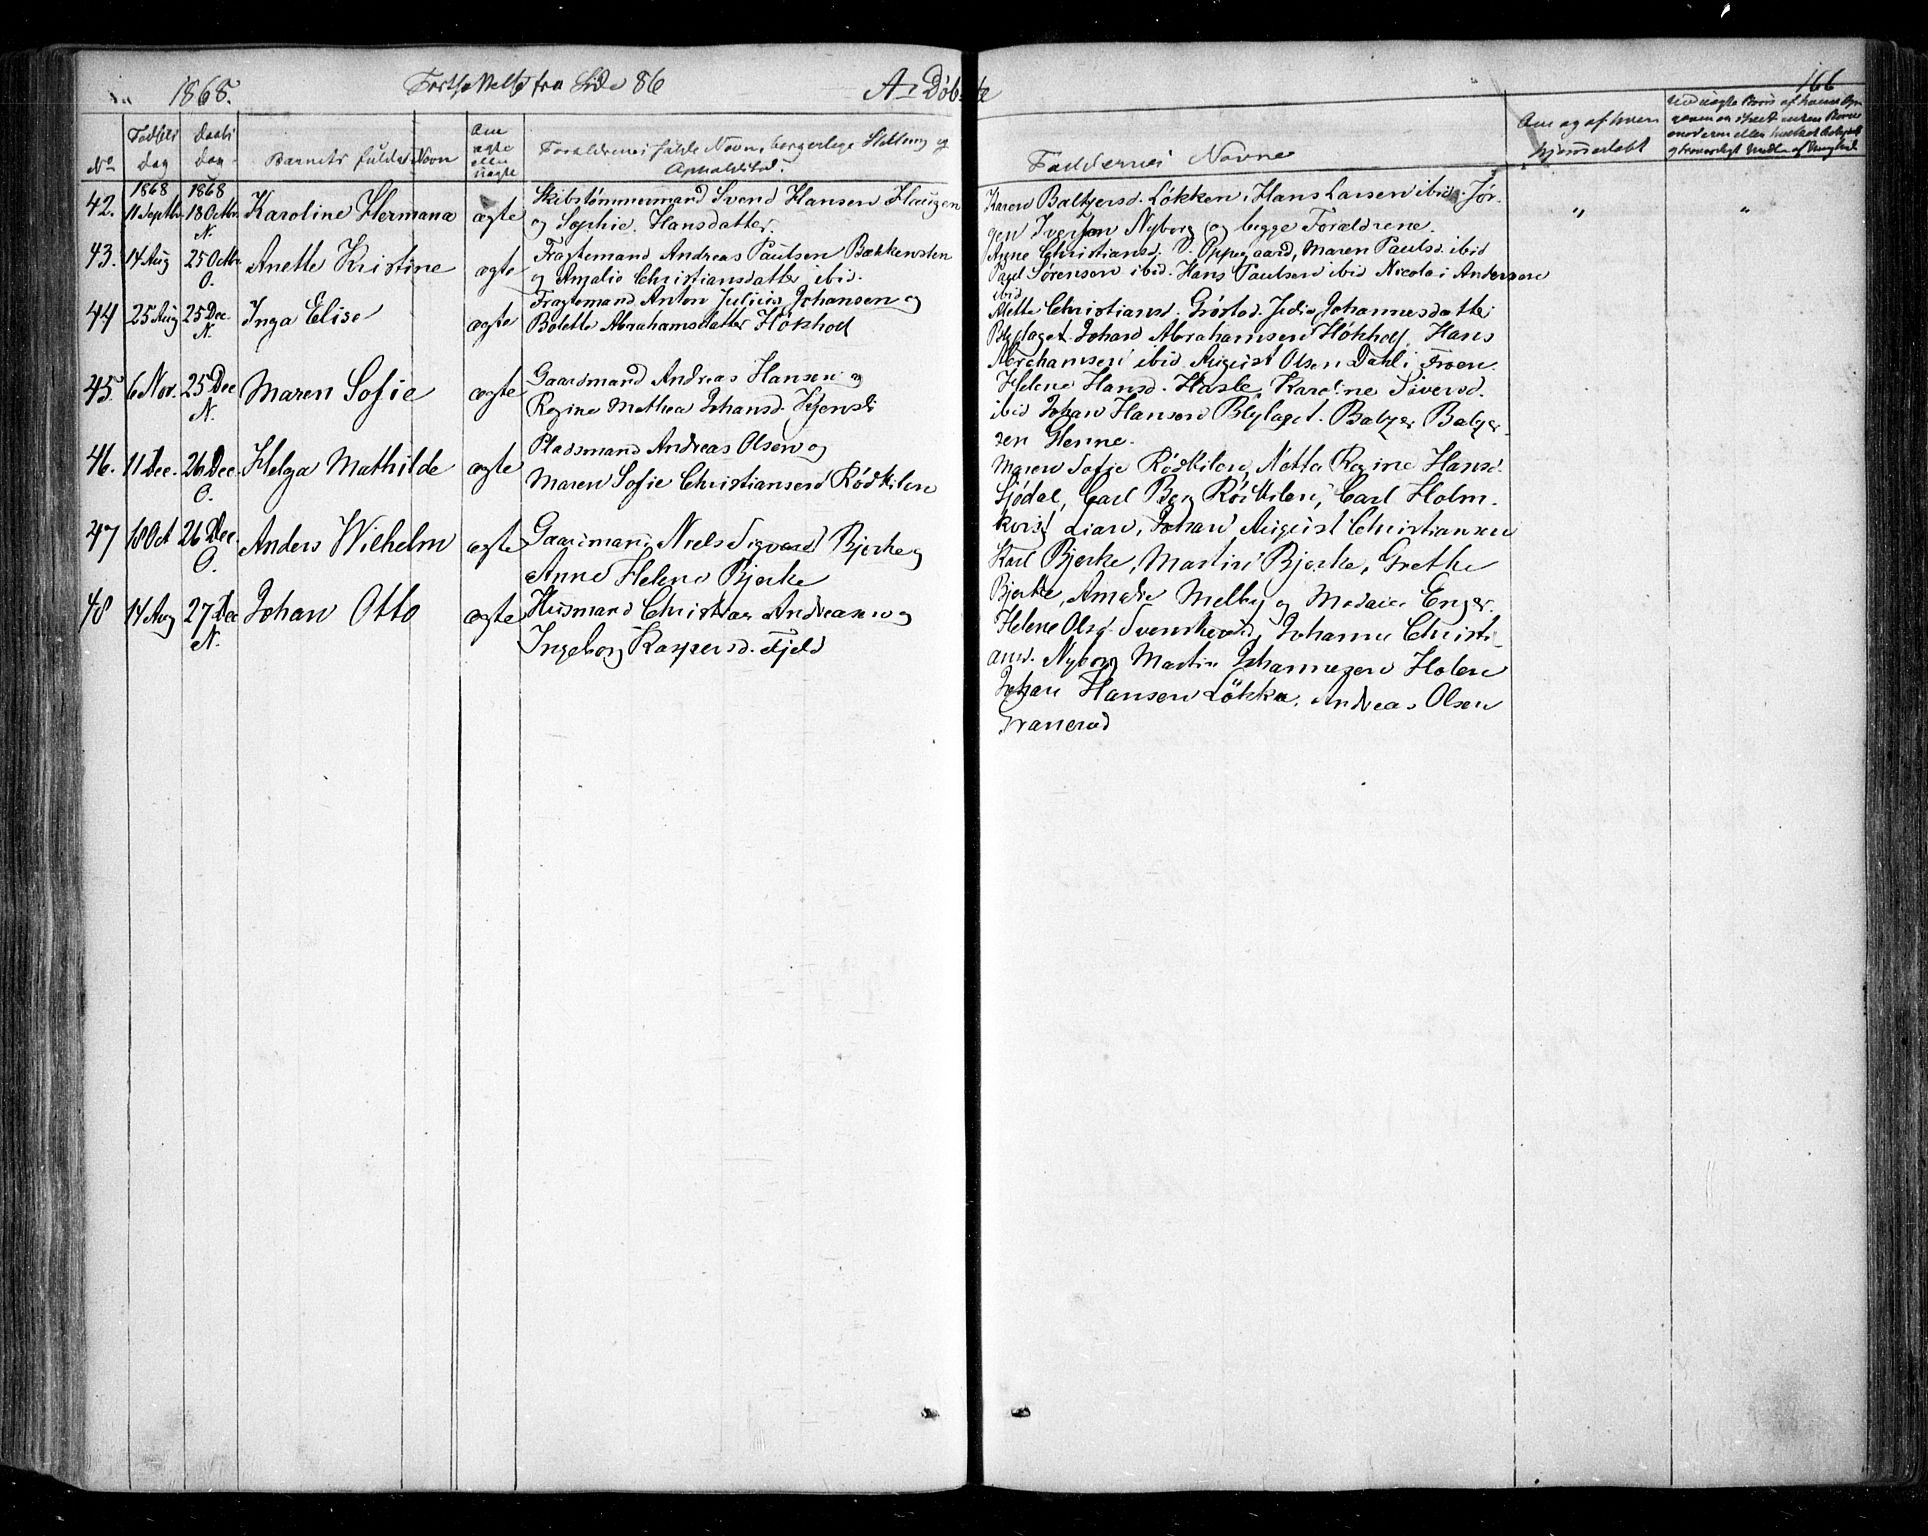 1868. Fortsættelse fra Side 86 A. Døbte 166
No Fødsels Dag Daabs Dag Barnets fulde Navn Om ægte eller uægte Forældrenes fulde Navn, borgerlige Stilling og Opholdsted. Faddernes Navne Om og af hvem hjemmedøbt
42. 1868 11 Septbr 1868 18 Octbr. N. Karoline Hermana ægte Skibstømmermand Svend Hansen Haugen
og Sophie Hansdatter.
Karen Baltzersd. Løkken, Hans Larsen ibid. Jør-
gen Iversen Nyborg og begge Forældrene. " "
43. 14 Aug 25 Octbr. O. Anette Kristine ægte Fragtemand Andreas Paulsen Bakkensten
og Amalie Christiansdatter ibid.
Anne Christiansd. Oppegaard, Maren Paulsd. ibid
Paul Sørensen ibid. Hans Paulsen ibid Nicolai Andersen
ibid
44 25 Aug 25 Dec. N. Inga Elise ægte Fragtemand Anton Julius Johansen og
Bolette Abrahamsdatter Hökhol
Alette Christiansd. Gröstad. Johannesdatter
Blylaget. Johan Abrahamsen Hökhol, Hans
Abrahamsen ibid August Olsen Dahl i Froen.
45. 6 Nov. 25 Dec N. Maren Sofie ægte Gaardmand Andreas Hansen og
Regine Mathea Johansd.
Helene Hansd. Hasle, Karoline Siversd.
ibid Johan Hansen Blylaget. Baltzer Baltzer-
sen Glenne.
46. 11 Dec. 26 Dec. O. Helga Mathilde ægte Pladsmand Andreas Olsen og
Maren Sofie Christiansen Rödkilen
Maren Sofie Rödkilen, Netta Regine Hansd.
Sjödal, Carl Berg Rödkilen, Carl Holm-
kvist Lian, Johan August Christiansen
47 18 Oct 26 Dec. O. Anders Wilhelm ægte Gaardmand Niels Sigvard Bjerke og
Anne Helene Bjerke
Karl Bjerke, Martin Bjerke, Grethe
Bjerke, Amalie Melby og Enger.
48 14 Aug 27 Dec N. Johan Otto ægte Husmand Christian Andreasen og
Ingeborg Kaspersd. Fjeld
Helene Olsd. Johanne Christi-
ansd. Nyborg Martin Johannesen Holen
Johan Hansen Lökka. Andreas Olsen
Granerud